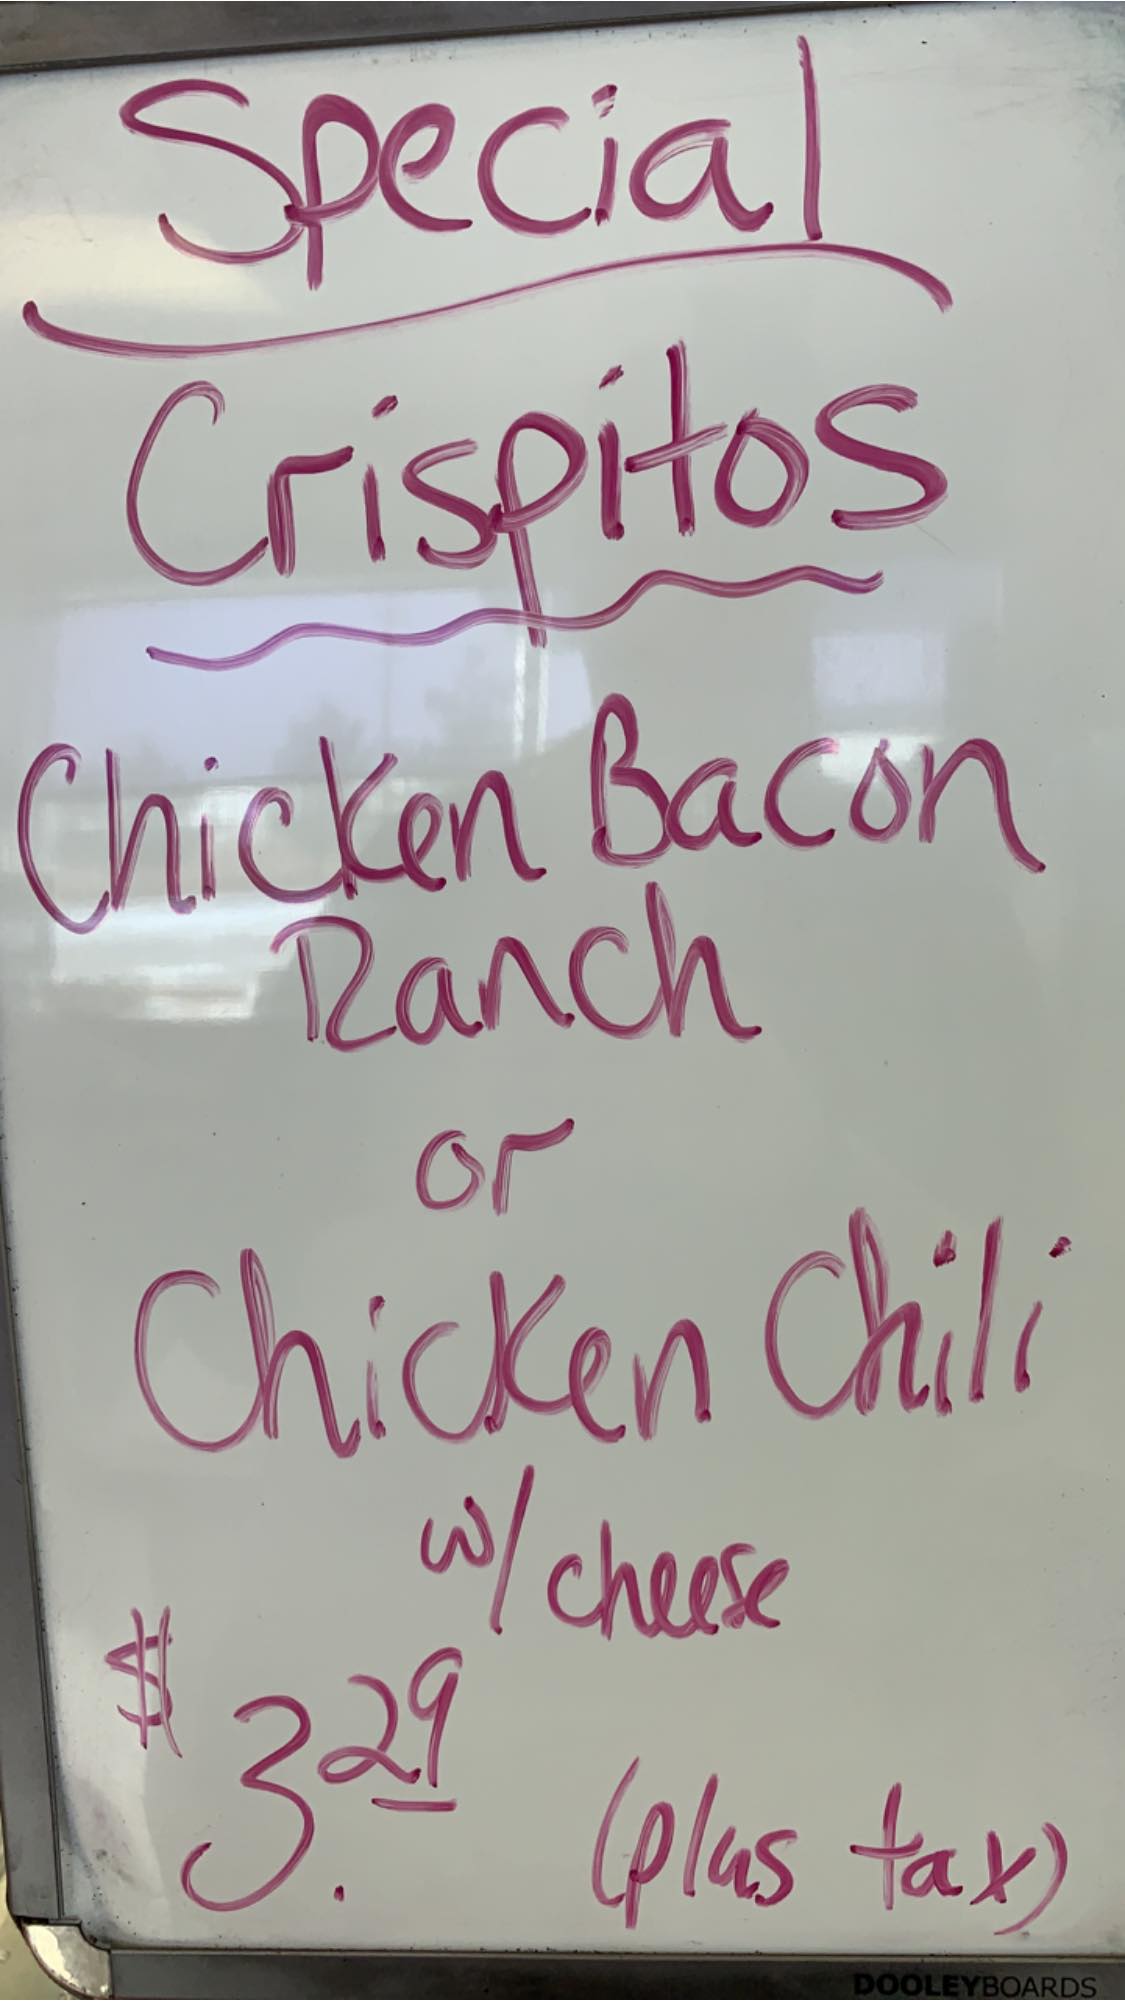 Special
Crispitos
Chicken Bacon
Ranch
or
Chicken Chili
w/ cheese
$3.29 (plus tax)
DOOLEYBOARDS